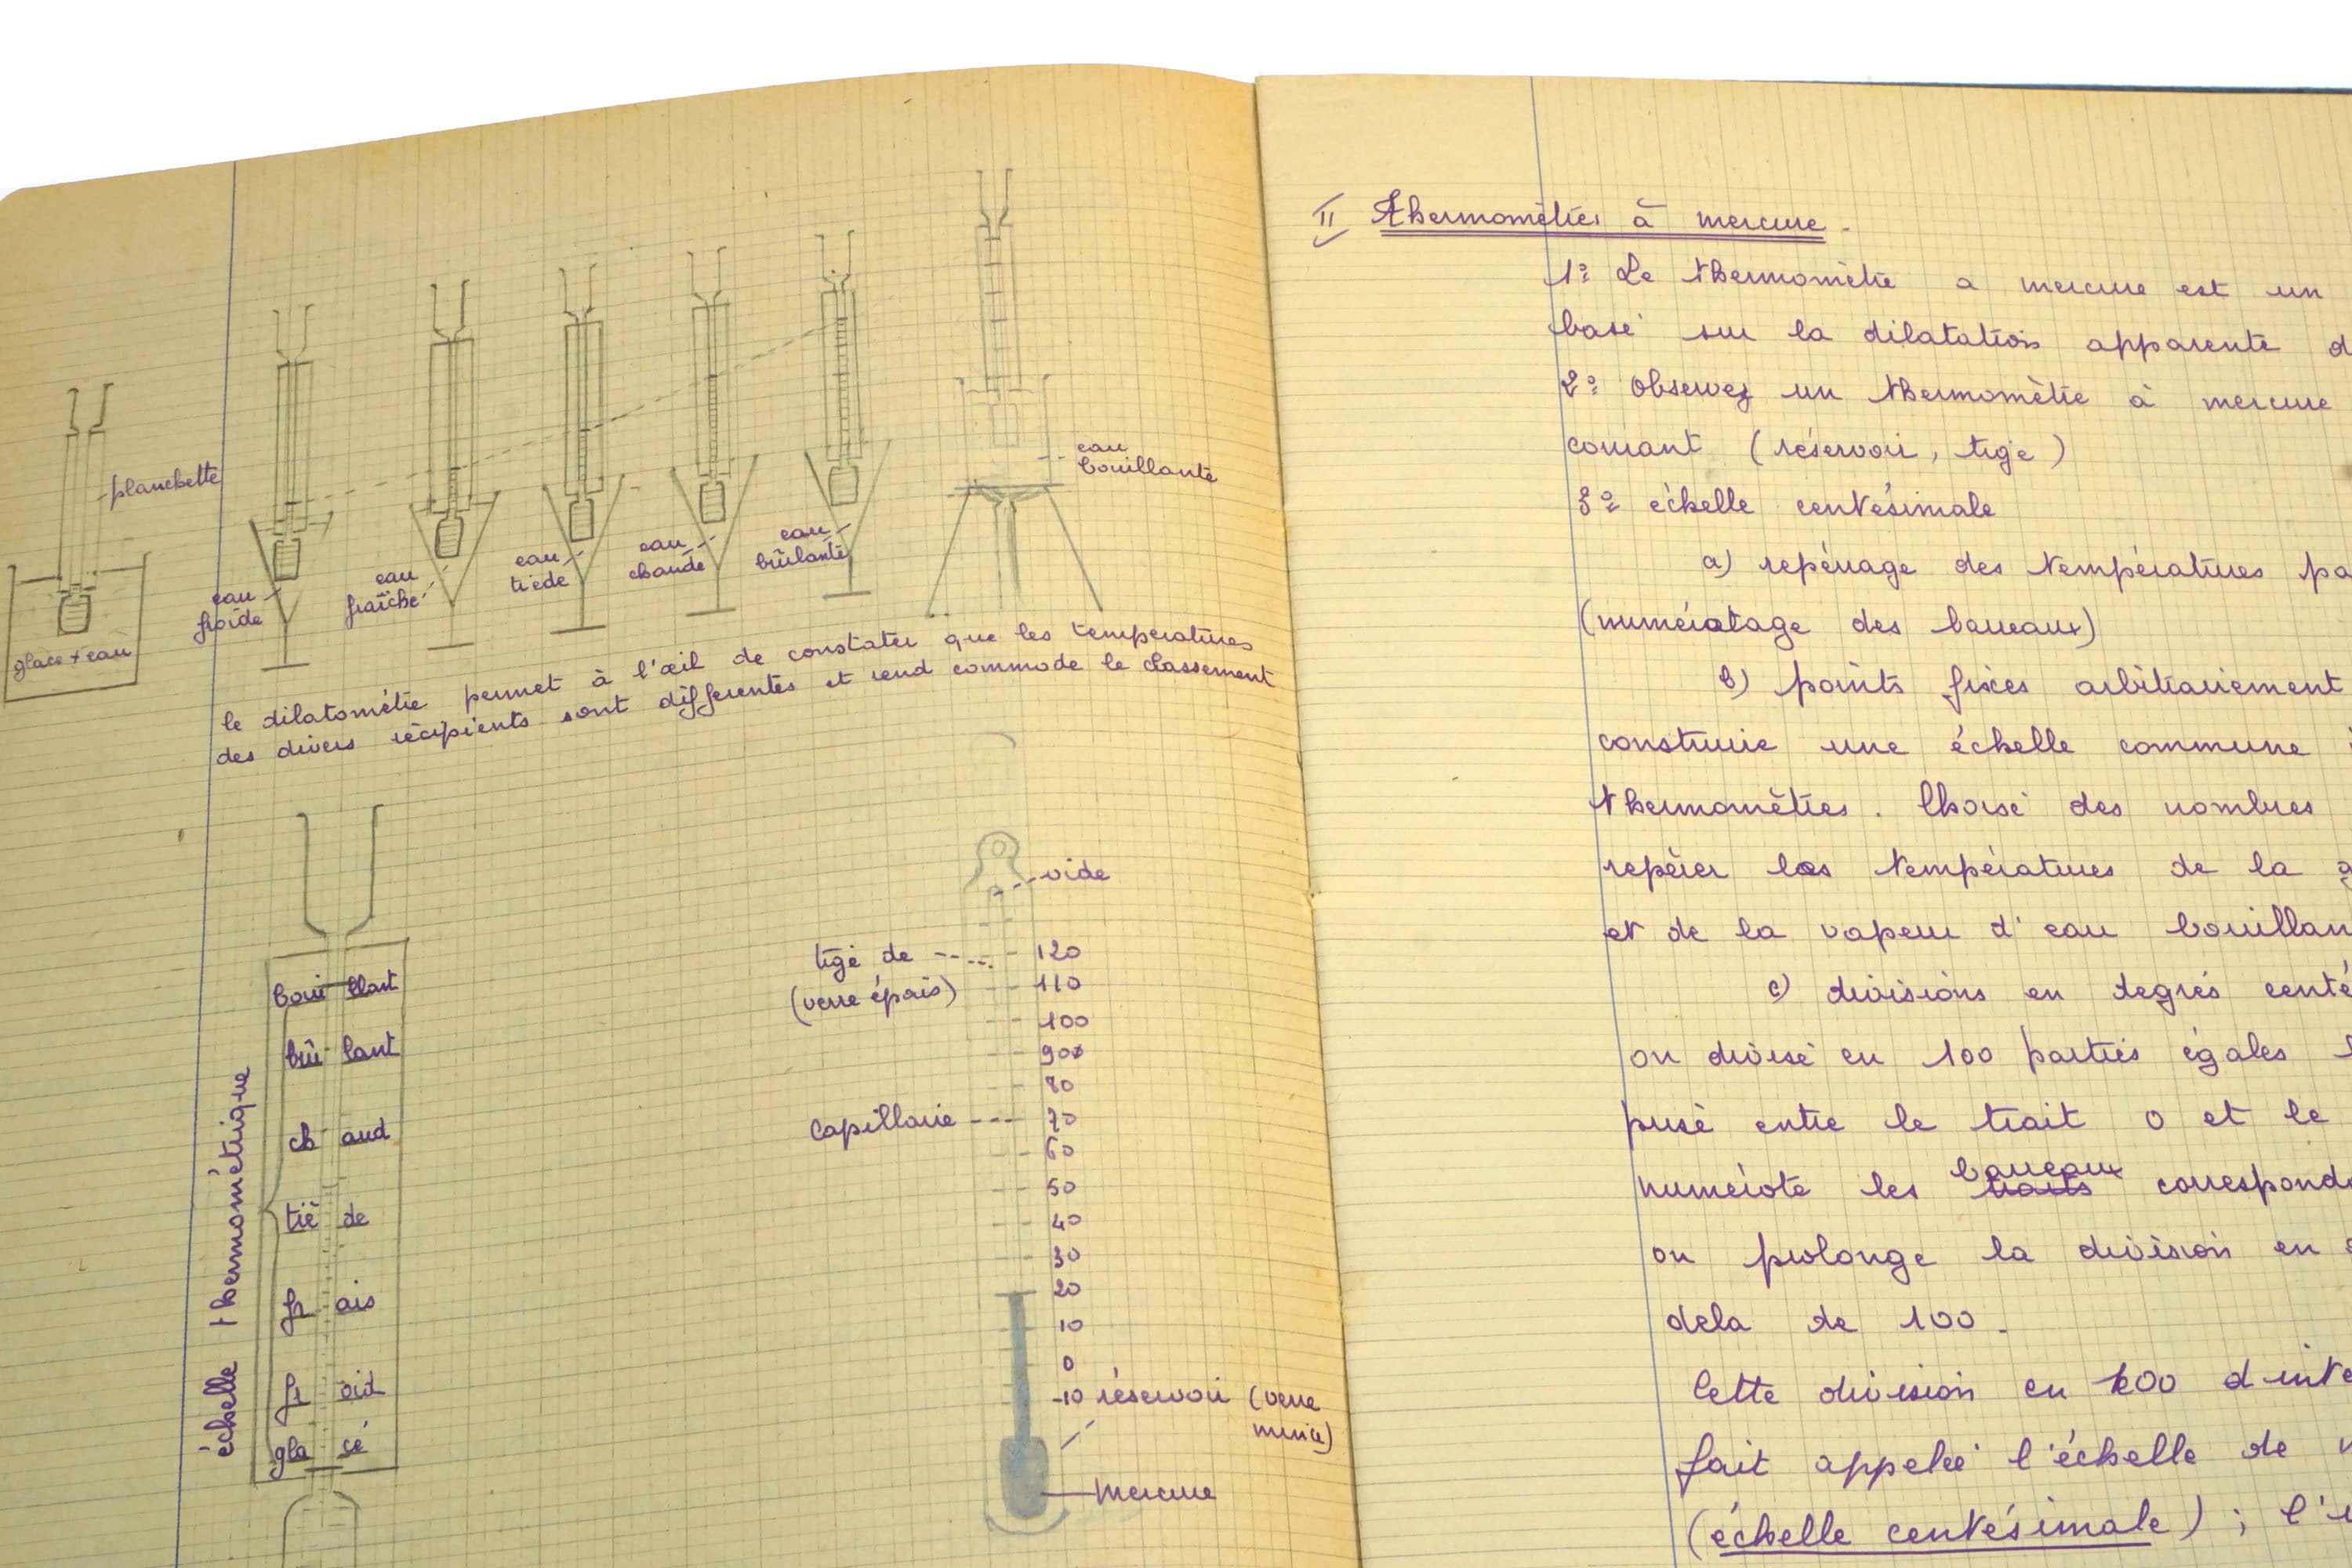 planchette
glace + eau
eau
froide
eau
fraîche
eau
tiède
eau
chaude
eau
brûlante
eau
bouillante
le dilatomètre permet à l'œil de constater que les temperatures
des divers récipients sont différentes et rend commode le classement
échelle thermométrique
boui llant
brû lant
ch aud
tiè de
fr ais
fr oid
gla cé
vide
tige de
(verre épais)
capillaire
120
110
100
90
80
70
60
50
40
30
20
10
0
-10
réservoir (verre
mince)
mercure
II Thermomètres à mercure.
1º Le thermomètre a mercure est un
basé sur la dilatation apparente d
2º Observez un thermomètre à mercure
courant (réservoir, tige)
3º échelle centésimale
a) repérage des températures pa
(numérotage des barreaux)
b) points fixes arbitrairement
construire une échelle commune
thermomètres. Choisi des nombres
repérer les températures de la g
et de la vapeur d'eau bouillan
c) divisions en degrés centé
on divise en 100 parties égales l
prise entre le trait 0 et le
numérote les barreaux traits correspond
on prolonge la division en
dela de 100.
Cette division en 100 d'inte
fait appelée l'échelle de
(échelle centésimale) ; l'